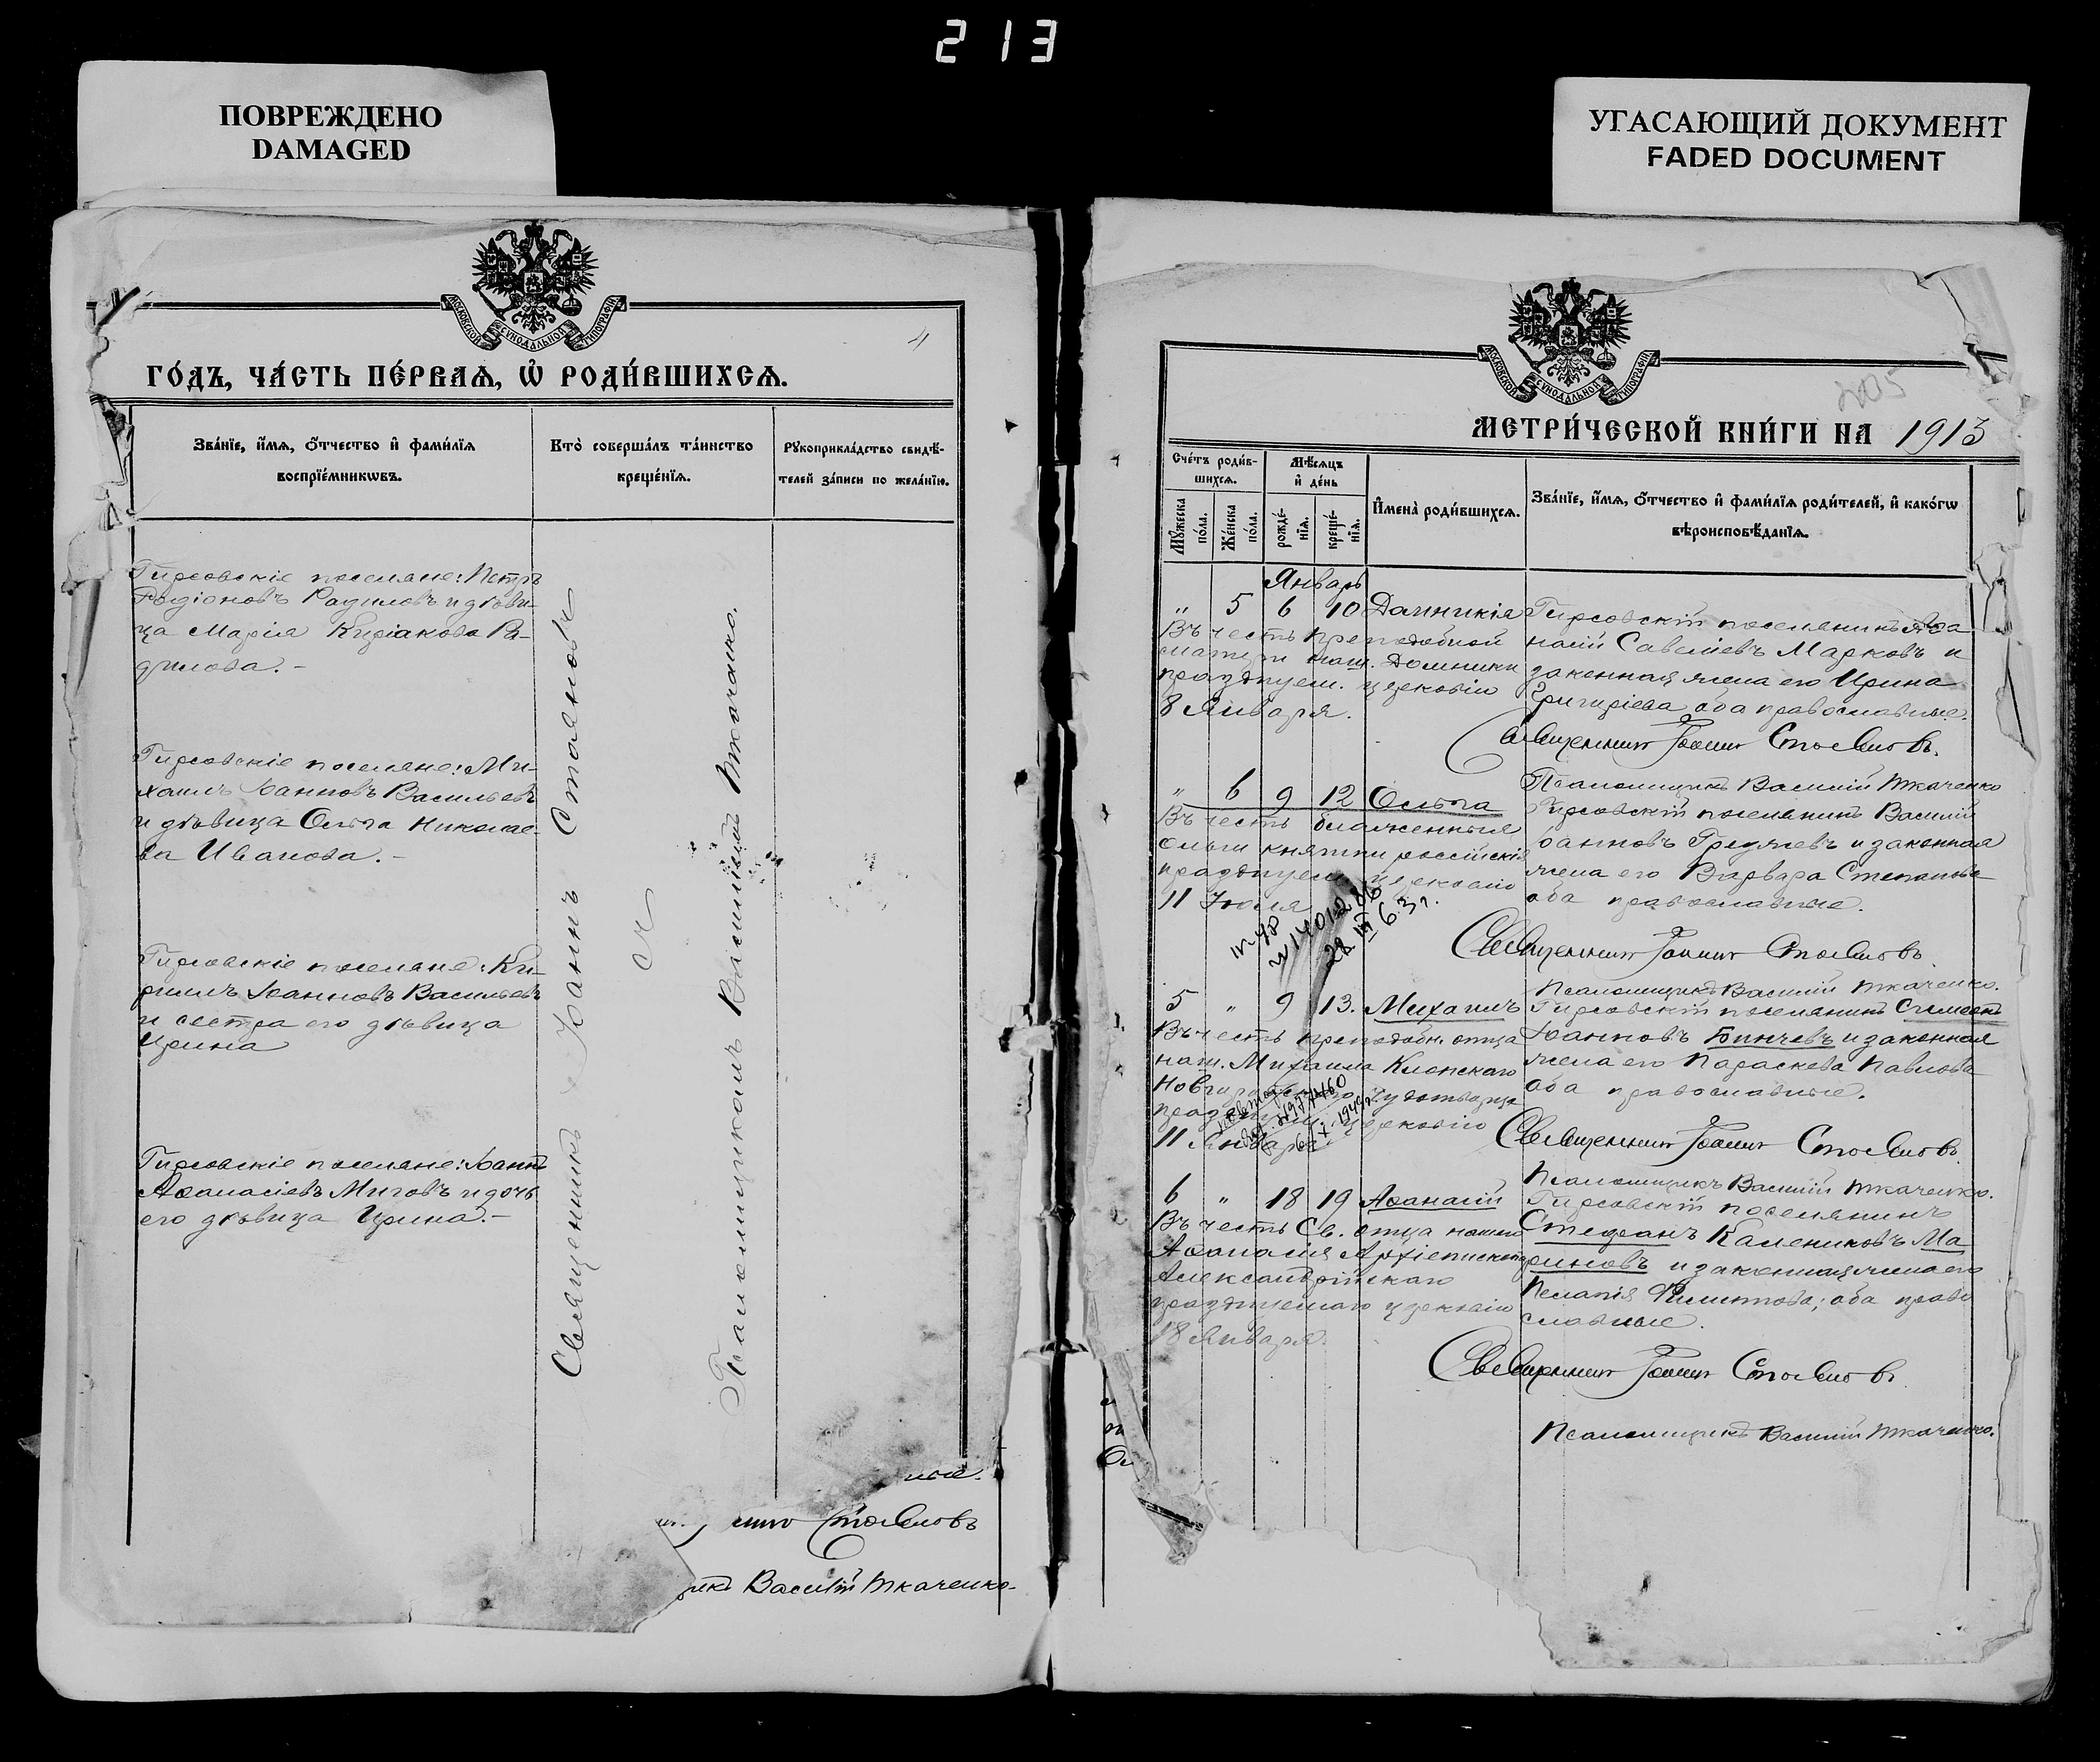 213
ПОВРЕЖДЕНО
DAMAGED
УГАСАЮЩИЙ ДОКУМЕНТ
FADED DOCUMENT
МОСКОВСКОЙ СѴНОДАЛЬНОЙ ТИПОГРАФІИ
4
ГО́ДЪ, ЧА́СТЬ ПЕ́РВАѦ, Ѽ РОДИ́ВШИХСѦ.
Зва́нїе, и́мѧ, ѻ́тчество и҆ фами́лїѧ
воспрїе́мникѡвъ.
Кто̀ соверша́лъ та́инство
креще́нїѧ.
Рꙋкоприкла́дство свидѣ́-
телей за́писи по жела́нїю.
Гирсовскіе поселяне: Петръ
Родіоновъ Радиловъ и дѣви-
ца Марія Киріакова Ра-
дилова.-
Гирсовскіе поселяне: Ми-
хаилъ Іоанновъ Васильевъ
и дѣвица Ольга Николае-
ва Иванова.-
Гирсовскіе поселяне: Ки-
риллъ Іоанновъ Васильевъ
и сестра его дѣвица
Ирина
Гирсовскіе поселяне: Іоаннъ
Аѳанасіевъ Митовъ и дочь
его дѣвица Ирина.-
Священникъ Іоаннъ Стояновъ
съ
Псаломщикомъ Василіемъ Ткаченко.
ные.
Стояновъ
Василій Ткаченко.
МОСКОВСКОЙ СѴНОДАЛЬНОЙ ТИПОГРАФІИ
205
МЕТРИ́ЧЕСКОЙ КНИ́ГИ НА 1913
Сче́тъ роди́в-
шихсѧ.
Мꙋ́жеска
по́ла.
Же́нска
по́ла.
Мѣ́сѧцъ
и҆ де́нь
рожде́-
нїѧ.
креще́-
нїѧ.
И҆мена̀ роди́вшихсѧ.
Зва́нїе, и́мѧ, ѻ́тчество и҆ фами́лїѧ роди́телей, и҆ како́гѡ
вѣроисповѣ́данїѧ.
Январь
" 5 6 10 Домникія
Въ честь преподобной
матери наш. Домники
празднуем. церковію
8 Января.
Гирсовскій поселянинъ Аѳа
насій Савеліевъ Марковъ и
законная жена его Ирина
Григоріева оба православные.
Священникъ Іоаннъ Стояновъ.
Псаломщикъ Василій Ткаченко
" 6 9 12 Ольга
Въ честь блаженныя
Ольги княгини россійскія
празднуем. церковію
11 Іюля
Гирсовскій поселянинъ Василій
Іоанновъ и законная
жена его Варвара Степанова
оба православные.
Священникъ Іоаннъ Стояновъ.
Псаломщикъ Василій Ткаченко.
5 " 9 13. Михаилъ
Въ честь преподобн. отца
наш. Михаила Клопскаго
Новгородскаго чудотворца
празднуем. церковію
11 Января
Гирсовскій поселянинъ Симеонъ
Іоанновъ Бинчевъ и законная
жена его Параскева Павлова
оба православные.
Священникъ Іоаннъ Стояновъ.
Псаломщикъ Василій Ткаченко.
6 " 18 19 Аѳанасій
Въ честь Св. отца нашего
Аѳанасія Архіепископа
Александрійскаго
празднуемаго церковію
18 Января.
Гирсовскій поселянинъ
Стефанъ Калениковъ Ма
риновъ и законная жена его
Пелагія Филиппова; оба право
славные.
Священникъ Іоаннъ Стояновъ.
Псаломщикъ Василій Ткаченко.